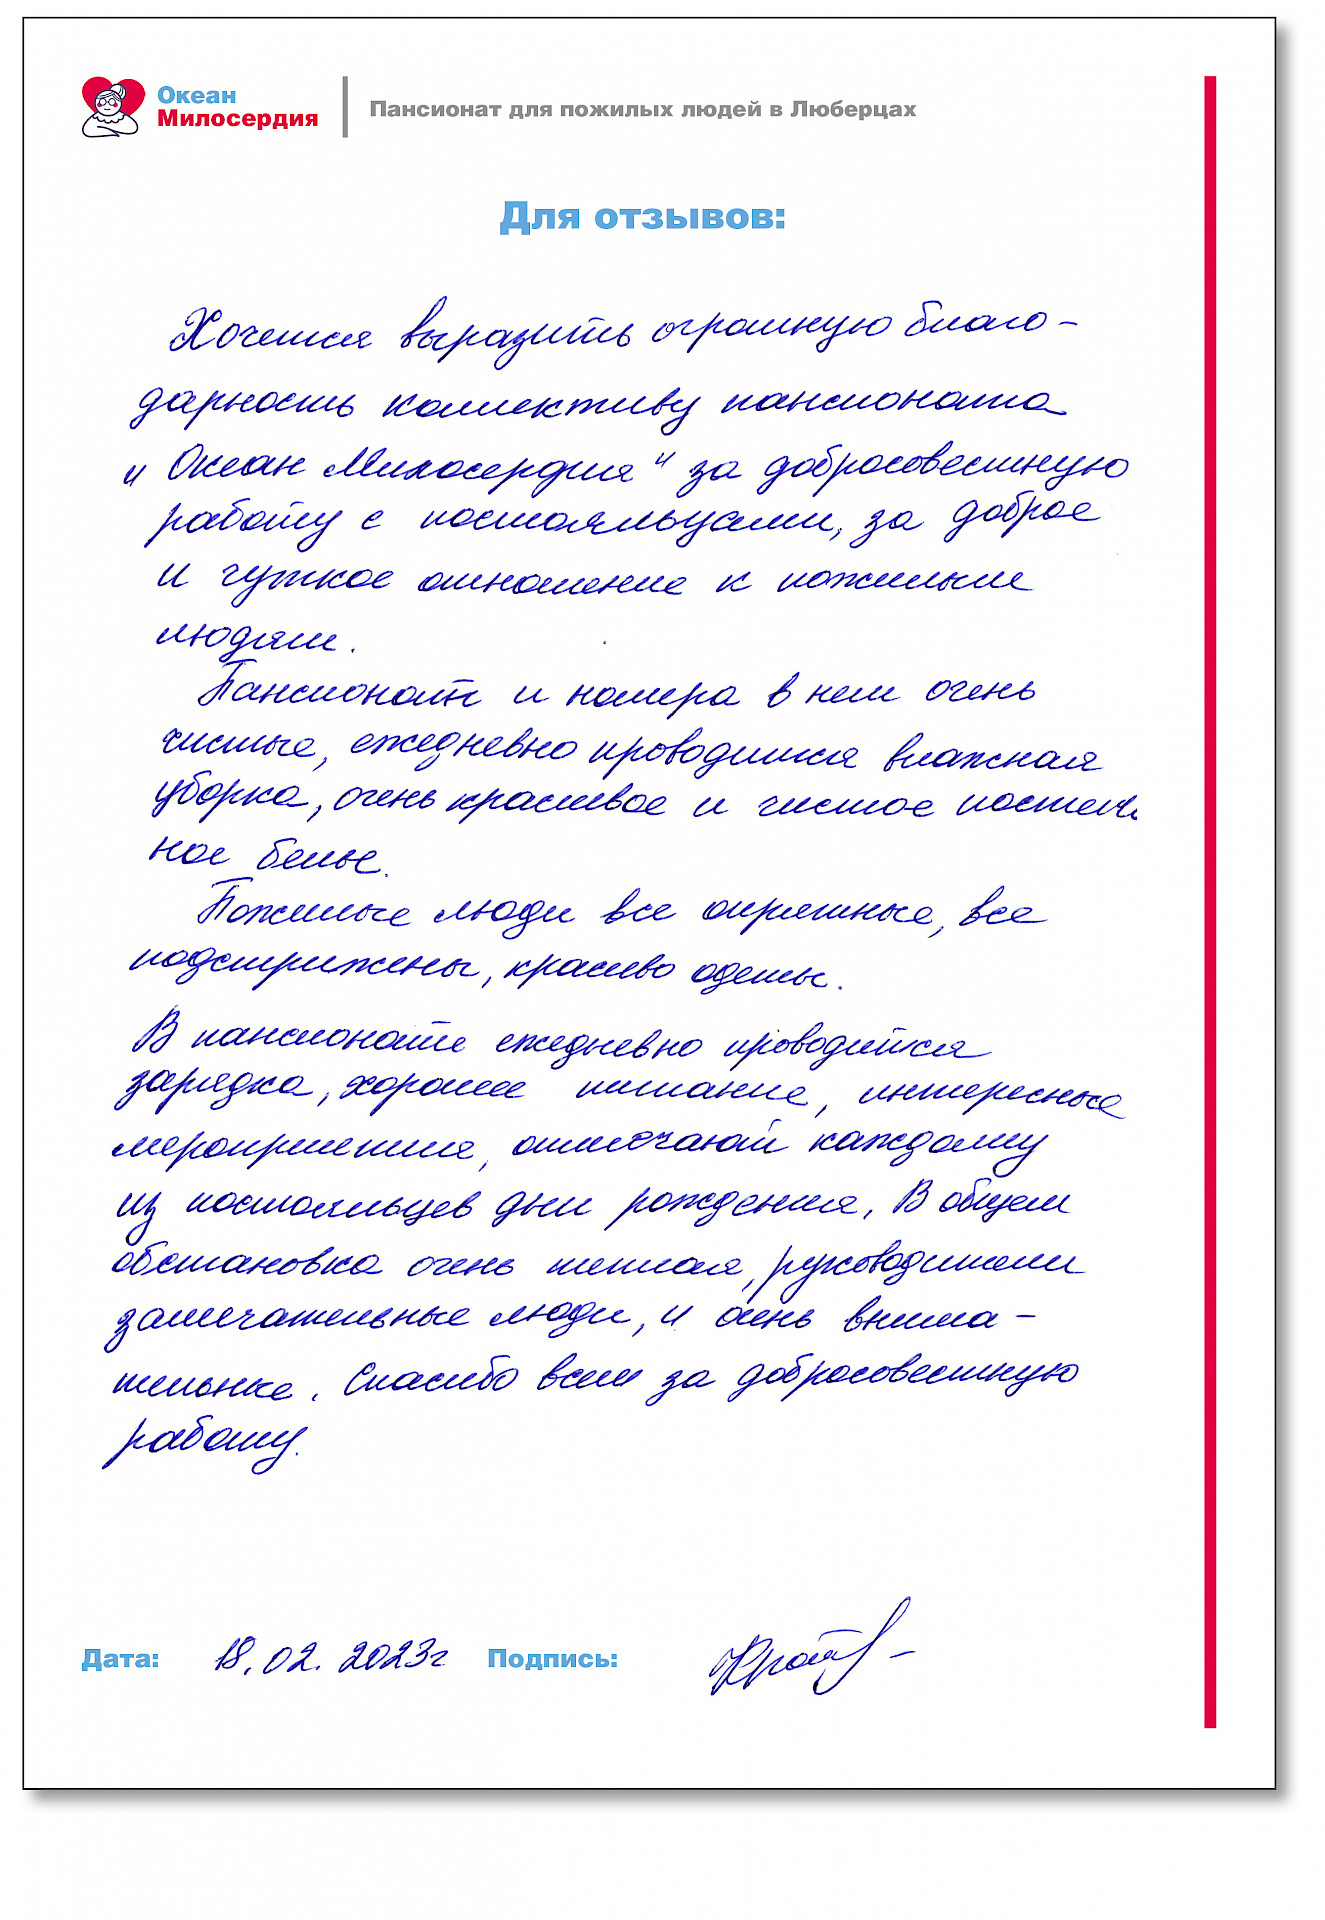 Океан
Милосердия
Пансионат для пожилых людей в Люберцах
Для отзывов:
Хочется выразить огромную благо-
дарность коллективу пансионата
"Океан Милосердия" за добросовестную
работу с постояльцами, за доброе
и чуткое отношение к пожилым
людям.
Пансионат и номера в нем очень
чистые, ежедневно проводится влажная
уборка, очень красивое и чистое постель
ное белье.
Пожилые люди все опрятные, все
подстрижены, красиво одеты.
В пансионате ежедневно проводится
зарядка, хорошее питание, интересные
мероприятия, отмечают каждому
из постояльцев дни рождения. В общем
обстановка очень теплая, руководители
замечательные люди, и очень внима-
тельные. Спасибо всем за добросовестную
работу.
Дата: 18.02.2023г Подпись: